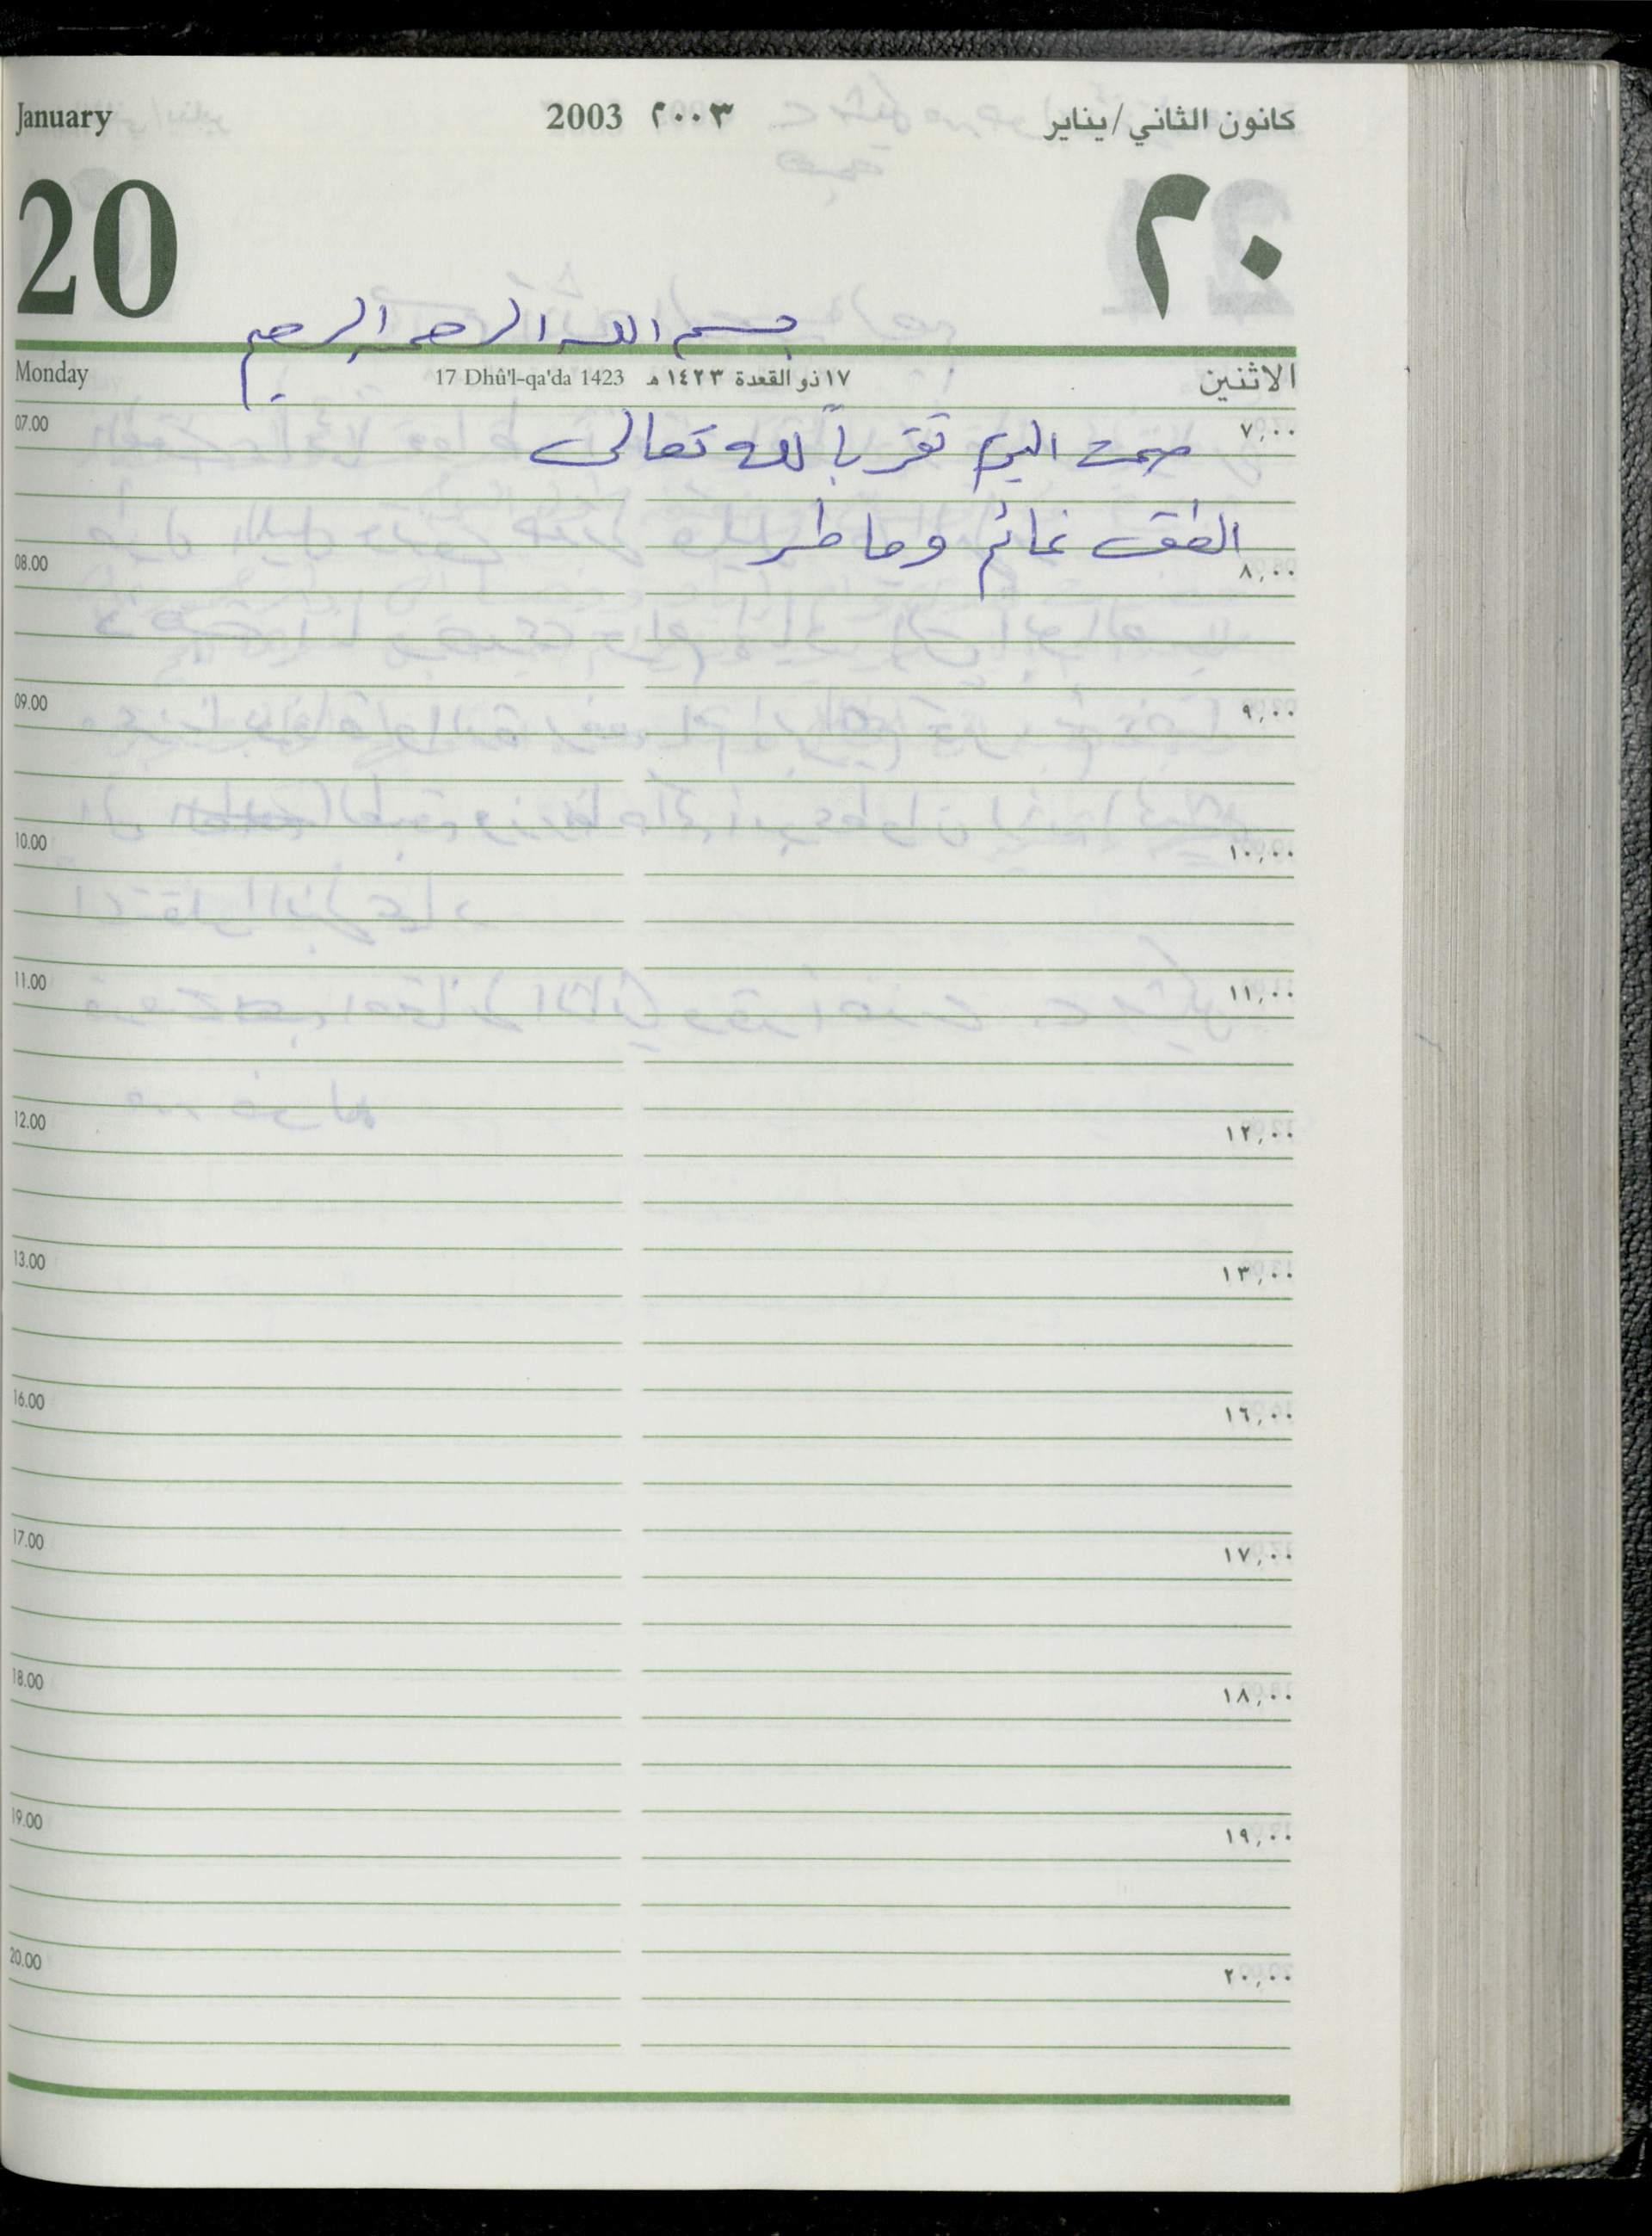 January 2003 ٢٠٠٣ كانون الثاني/يناير
20 ٢٠
بسم الله الرحمن الرحيم
Monday 17 Dhû'l-qa'da 1423 ١٧ ذو القعدة ١٤٢٣ هـ الاثنين
07.00 ٧,٠٠
صمت اليوم تقرباً لله تعالى
الطقس غائم وماطر
08.00 ٨,٠٠
09.00 ٩,٠٠
10.00 ١٠,٠٠
11.00 ١١,٠٠
12.00 ١٢,٠٠
13.00 ١٣,٠٠
16.00 ١٦,٠٠
17.00 ١٧,٠٠
18.00 ١٨,٠٠
19.00 ١٩,٠٠
20.00 ٢٠,٠٠